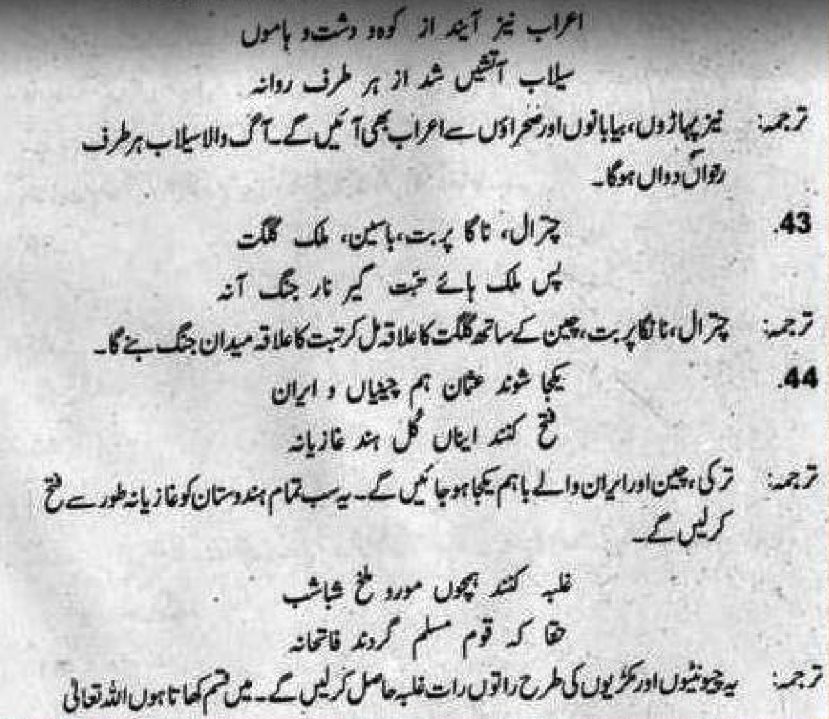 اعراب نیز آیند از کوہ و دشت و ہاموں
سیلاب آتشیں شد از ہر طرف روانہ
ترجمہ: نیز پہاڑوں، بیابانوں اور صحراؤں سے اعراب بھی آئیں گے۔ آگ والا سیلاب ہر طرف
رواں دواں ہوگا۔
43. چترال، ناگا پربت، باسین، ملک گلگت
پس ملک ہائے تبت گیر نار جنگ آنہ
ترجمہ: چترال، نانگا پربت، چین کے ساتھ گلگت کا علاقہ مل کر تبت کا علاقہ میدان جنگ بنے گا۔
44. یکجا شوند عثمان ہم چینیاں و ایران
فتح کنند ایناں کُل ہند غازیانہ
ترجمہ: ترکی، چین اور ایران والے باہم یکجا ہو جائیں گے۔ یہ سب تمام ہندوستان کو غازیانہ طور سے فتح
کرلیں گے۔
غلبہ کنند ہمچوں مور و ملخ شباشب
حقا کہ قوم مسلم گردند فاتحانہ
ترجمہ: یہ چیونٹیوں اور مکڑیوں کی طرح راتوں رات غلبہ حاصل کرلیں گے۔ میں قسم کھاتا ہوں اللہ تعالیٰ